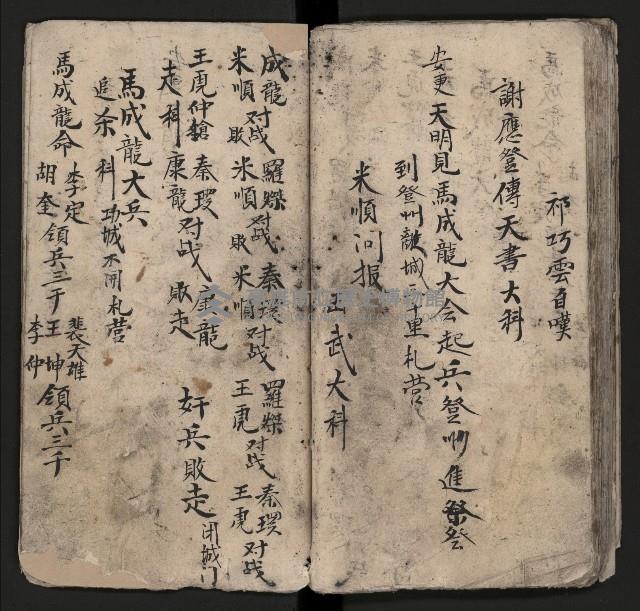 祁巧雲自嘆
謝應登傳天書大科
安更 天明見馬成龍大会起兵登州進祭登
到登州離城十里札营
米順问报
出武大科
成龍对战 羅燦对战 秦瑗对战 羅燦对战 秦瑗对战
米順敗 米順敗 米順 王虎 王虎
王虎仲鎗 秦瑗对战 康龍
走科 康龍 敗走 奸兵敗走 闭城门
馬成龍大兵
追杀科 功城不開札营
馬成龍命 李定 胡奎 領兵三千 裴天雄 王坤 李仲 領兵三千